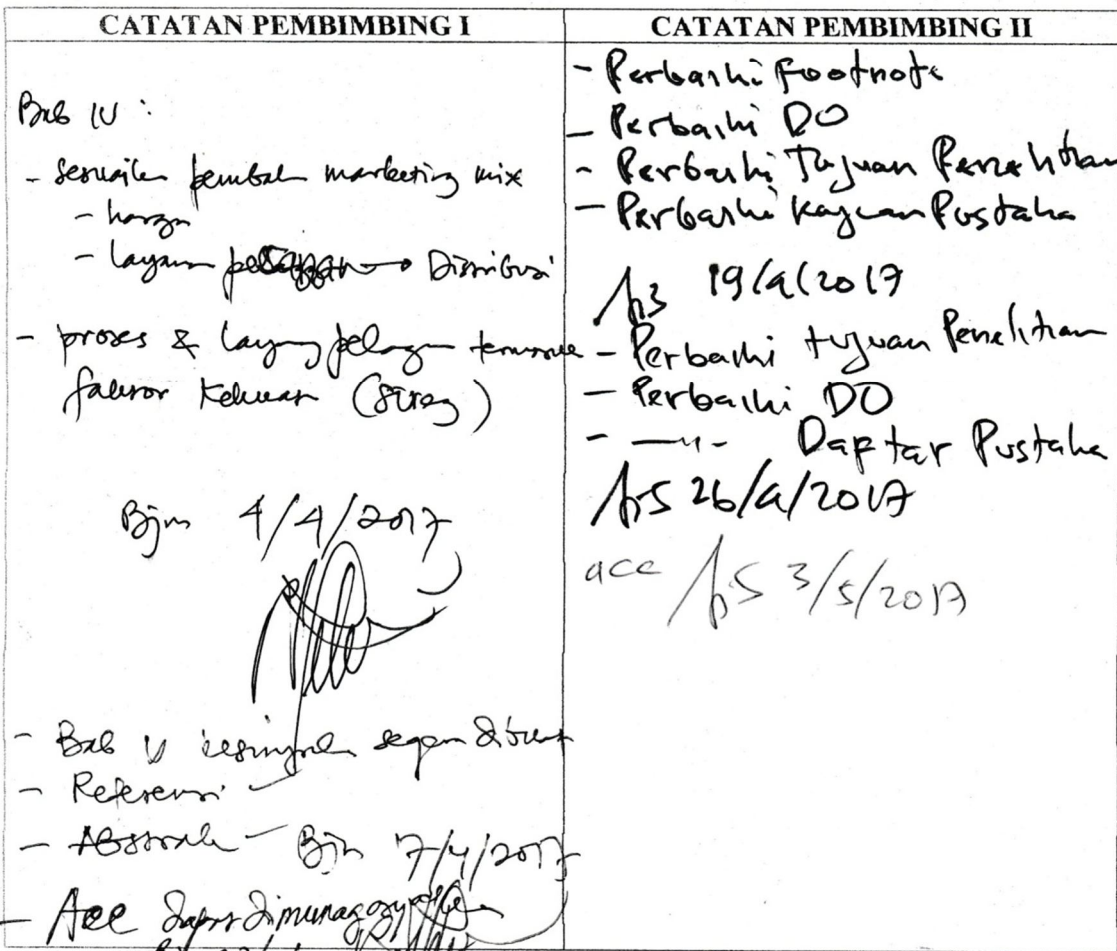 CATATAN PEMBIMBING I
Bab IV :
- sesuaikan marketing mix
- harga
- layanan → Distribusi
- proses & layanan pelanggan termasuk
faktor Keluar
Bjm 4/4/2017
- Bab V kesimpulan segera dibuat
- Referensi
- Abstrak - Bjm 7/4/2017
- Acc dapat dimunaqasyahkan
CATATAN PEMBIMBING II
- Perbaiki Footnote
- Perbaiki DO
- Perbaiki Tujuan Penelitian
- Perbaiki Kajian Pustaka
19/4/2017
- Perbaiki tujuan Penelitian
- Perbaiki DO
- —"- Daptar Pustaka
26/4/2017
acc 3/5/2017